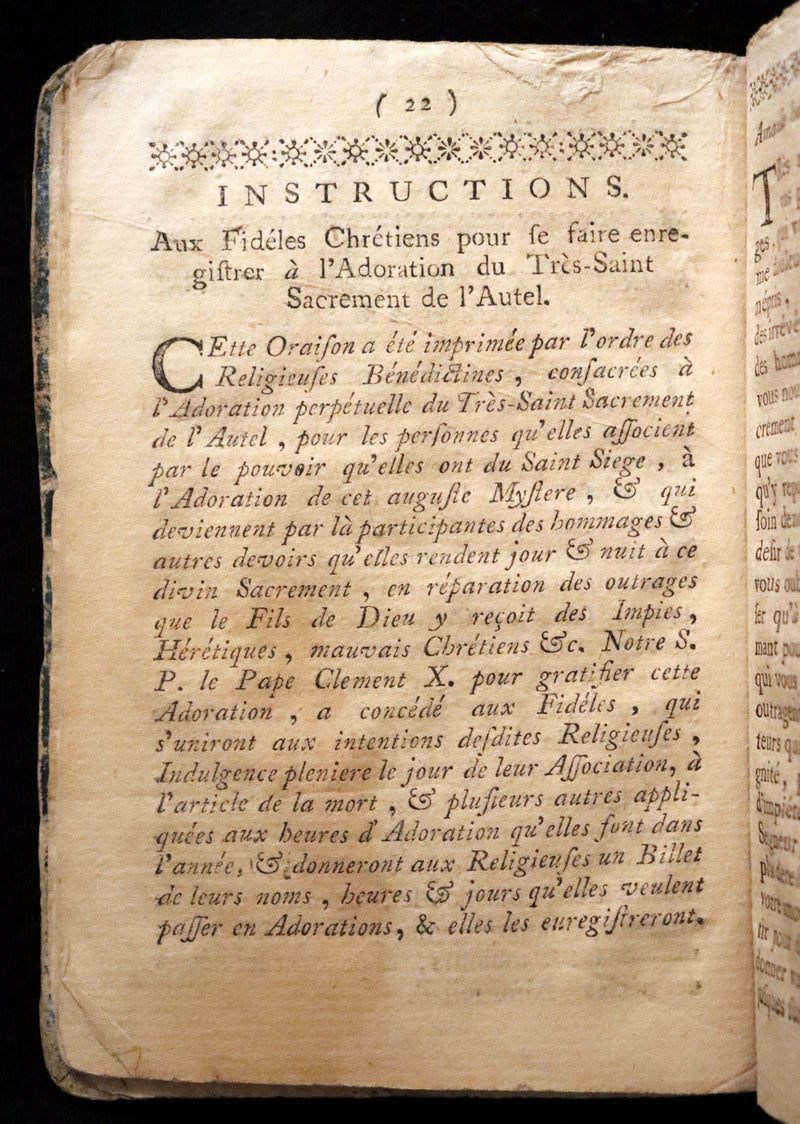 ( 22 )
INSTRUCTIONS.
Aux Fidéles Chrétiens pour ſe faire enre-
giſtrer à l'Adoration du Très-Saint
Sacrement de l'Autel.
CEtte Oraiſon a été imprimée par l'ordre des
Religieuſes Bénédictines, conſacrées à
l'Adoration perpétuelle du Très-Saint Sacrement
de l'Autel, pour les perſonnes qu'elles aſſocient
par le pouvoir qu'elles ont du Saint Siege, à
l'Adoration de cet auguſte Myſtere, & qui
deviennent par là participantes des hommages &
autres devoirs qu'elles rendent jour & nuit à ce
divin Sacrement, en réparation des outrages
que le Fils de Dieu y reçoit des Impies,
Hérétiques, mauvais Chrétiens &c. Notre S.
P. le Pape Clement X. pour gratifier cette
Adoration, a concédé aux Fidéles, qui
s'uniront aux intentions deſdites Religieuſes,
Indulgence pleniere le jour de leur Aſſociation, à
l'article de la mort, & pluſieurs autres appli-
quées aux heures d'Adoration qu'elles font dans
l'année, & donneront aux Religieuſes un Billet
de leurs noms, heures & jours qu'elles veulent
paſſer en Adorations, & elles les euregiſtreront.
ges,
népris,
des irréve
des hom
vous nou
crément
que vous
qu'y
ſoin de
deſir de
vous
ſer qu'
mant pou
qui vous
teurs
gnité,
d'impié
Seigneur